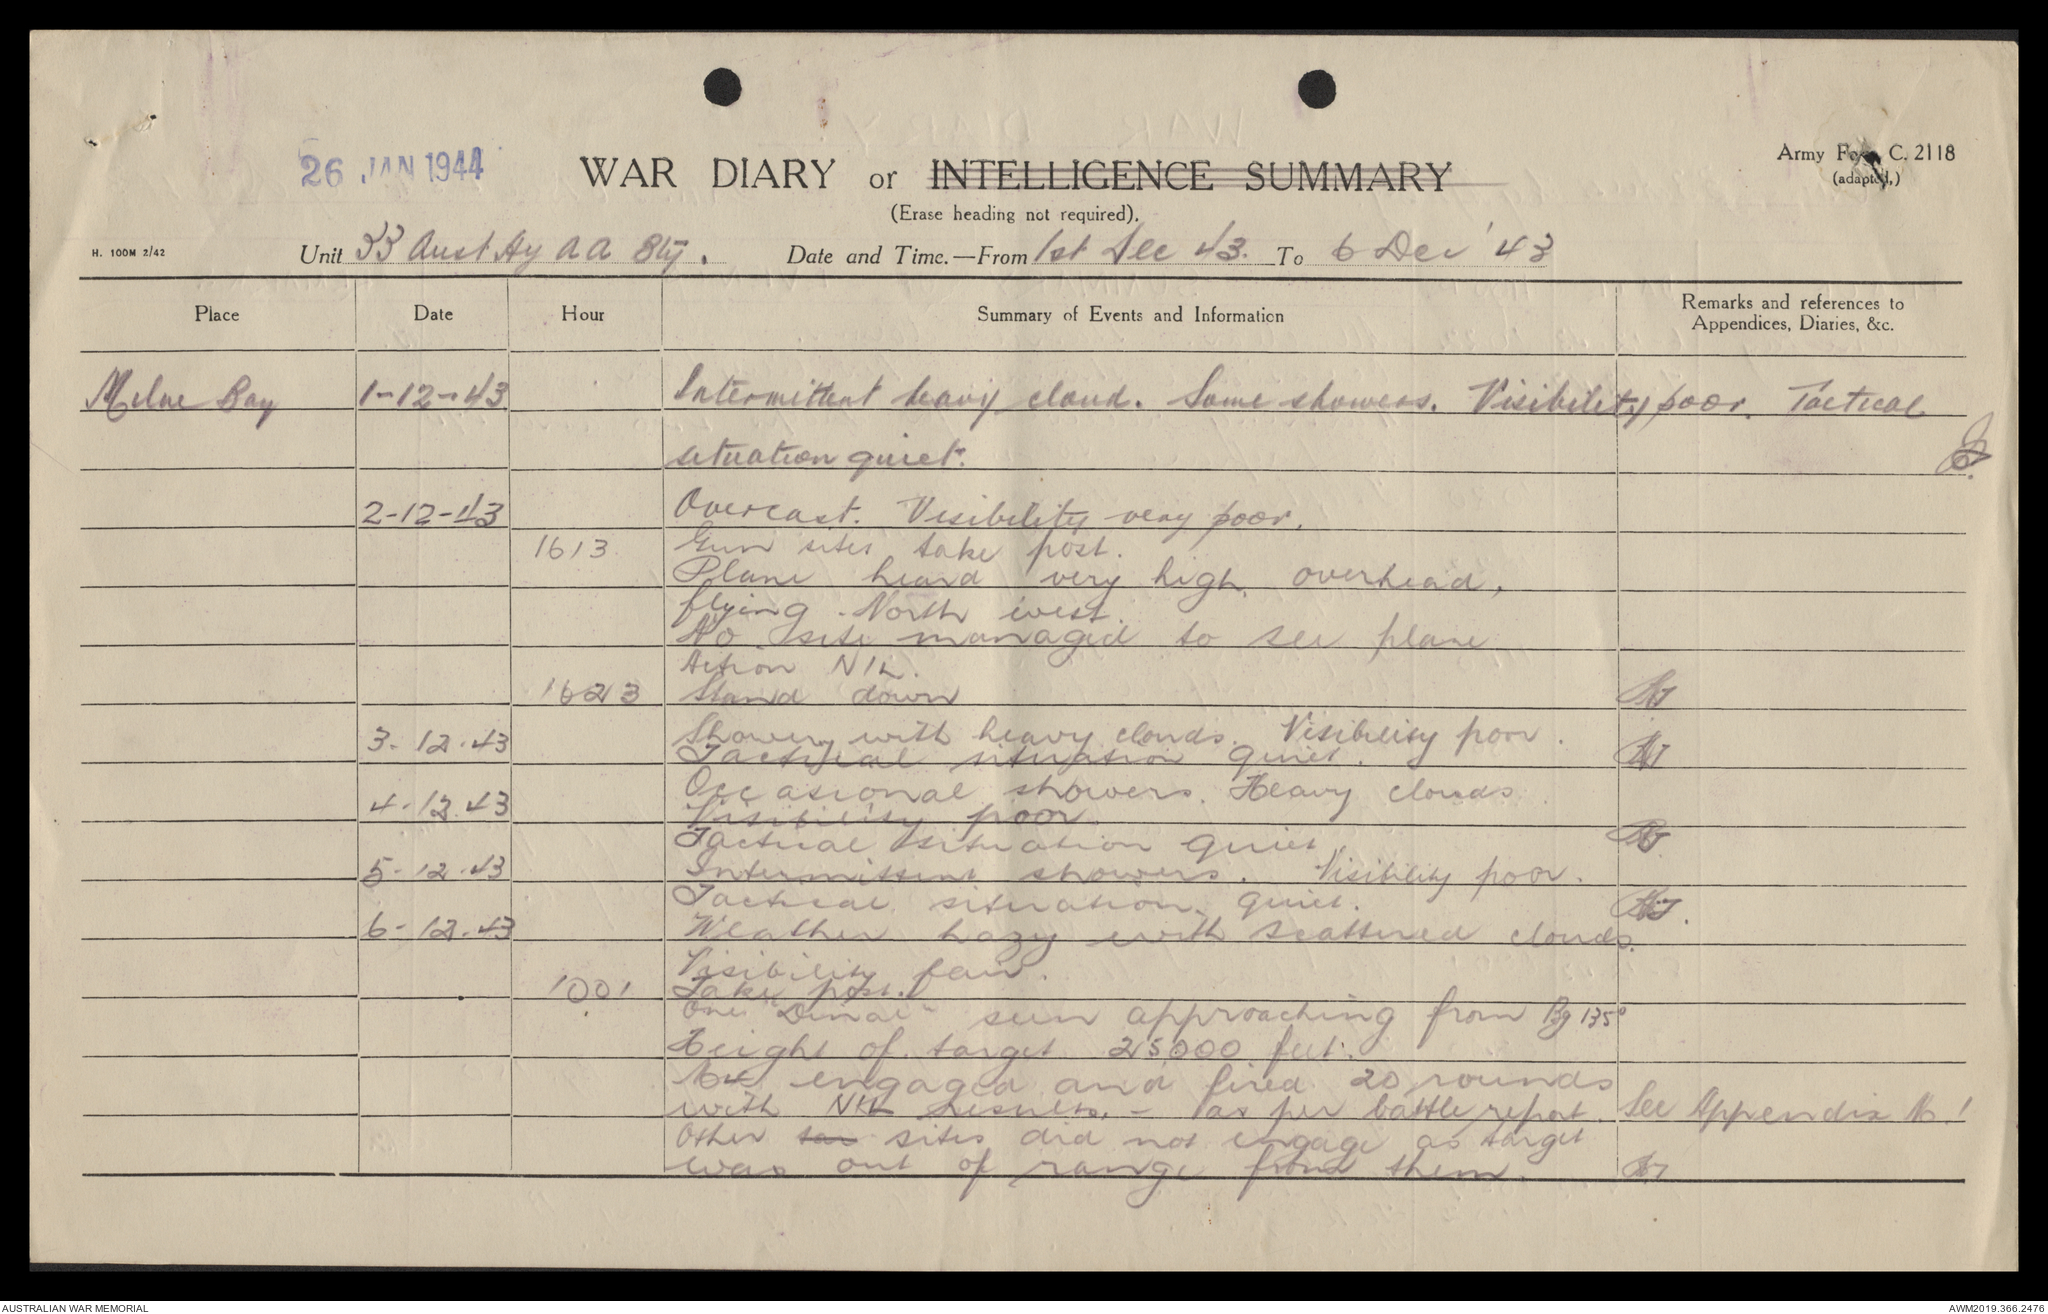 26 JAN 1944
WAR DIARY or INTELLIGENCE SUMMARY
Army Form C. 2118
(adapted,)
(Erase heading not required).
H. 100M 2/42
Unit 33 Aust Hy AA Bty. Date and Time.—From 1st Dec 43. To 6 Dec '43
Place Date Hour Summary of Events and Information Remarks and references to
Appendices, Diaries, &c.
Milne Bay 1-12-43 Intermittent heavy cloud. Some showers. Visibility poor. Tactical
situation quiet.
2-12-43 Overcast. Visibility very poor.
1613 Gun sites take post.
Plane heard very high overhead,
flying North west.
No site managed to see plane
Action NIL.
1623 Stand down
3-12-43 Showery with heavy clouds. Visibility poor.
Tactical situation quiet.
4-12-43 Occasional showers. Heavy clouds
Visibility poor.
Tactical situation quiet.
5-12-43 Intermittent showers. Visibility poor.
Tactical situation quiet.
6-12-43 Weather hazy with scattered clouds.
Visibility fair.
1001 Take post.
One "Dinah" seen approaching from Bg 135°
Height of target 25000 feet.
engaged and fired 20 rounds
with NIL results, - as per battle report. See Appendix No. 1
Other sites did not engage as target
was out of range from them.
AUSTRALIAN WAR MEMORIAL
AWM2019.366.2476